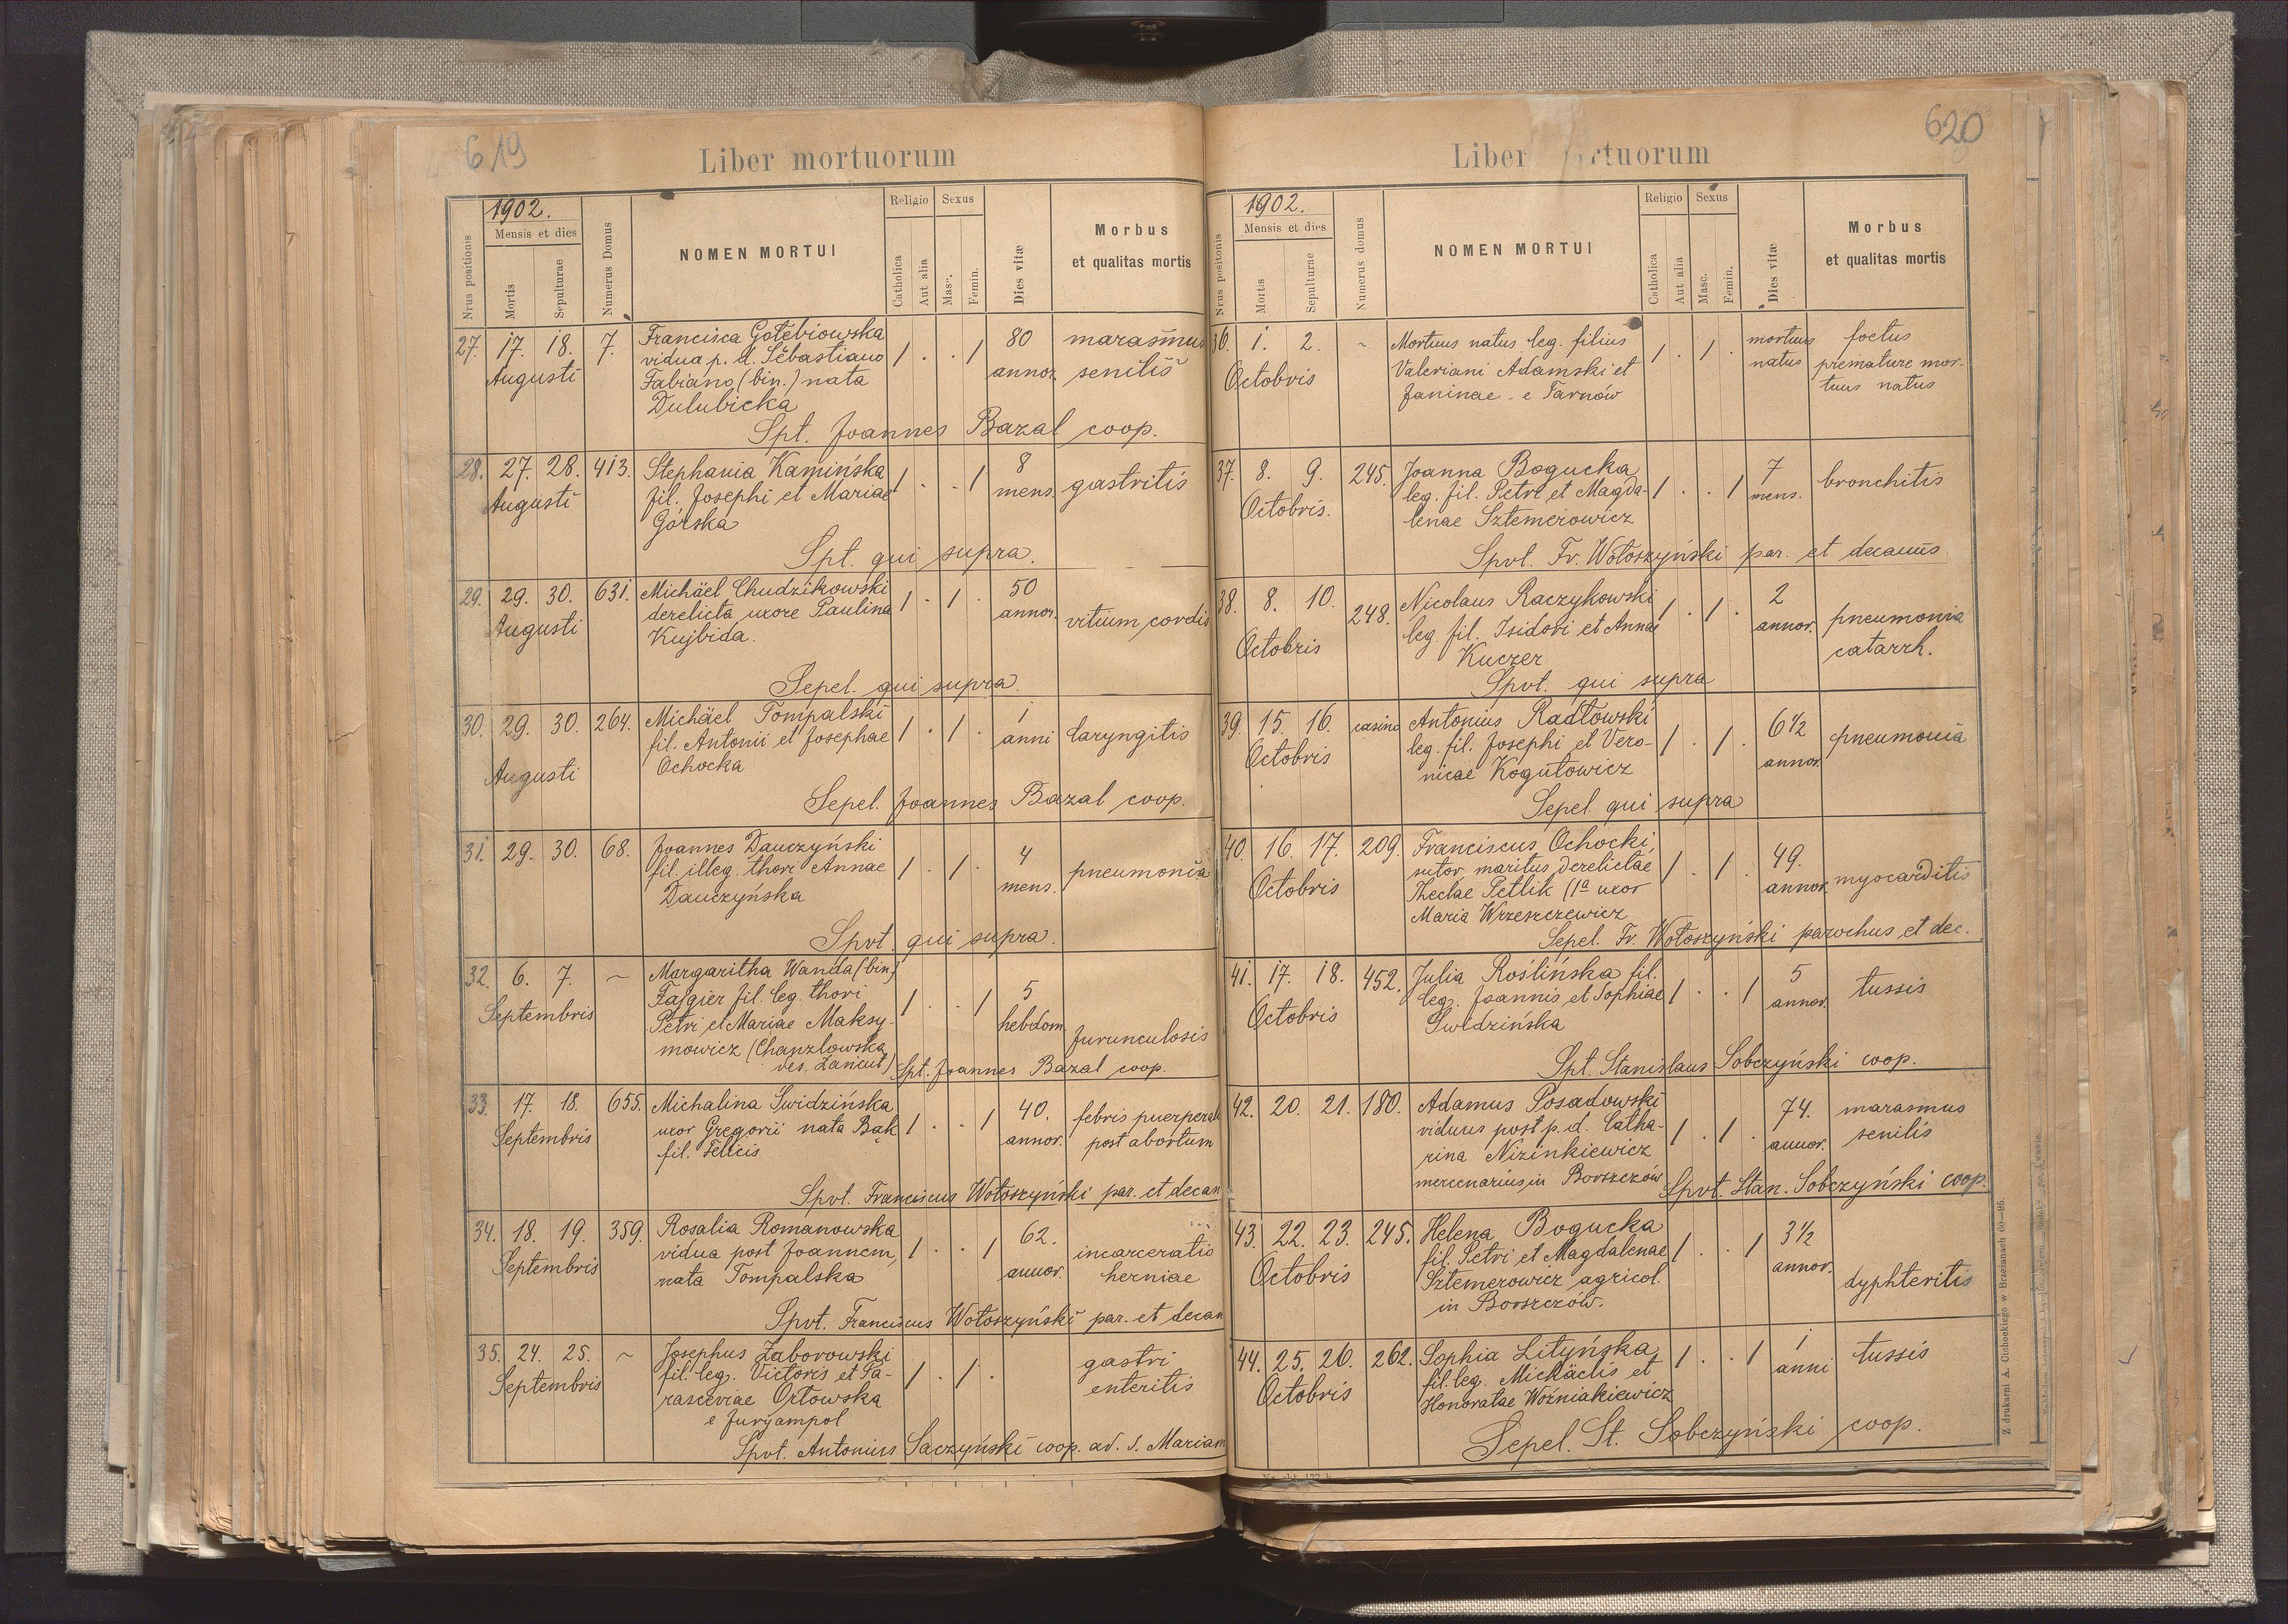 619
Liber mortuorum
1902.
Mensis et dies
Religio
Sexus
Nrus positionis
Mortis
Sepulturae
Numerus Domus
NOMEN MORTUI
Catholica
Aut alia
Masc.
Femin.
Dies vitæ
Morbus
et qualitas mortis
27. 17. 18. 7. Francisca Gołębiowska 1 . . 1 80 marasmus
Augusti vidua p. d. Sebastiano annor. senilis
Fabiano (bin.) nata
Dulubicka
Spt. Joannes Bazal coop.
28. 27. 28. 413. Stephania Kamińska 1 . . 1 8 gastritis
Augusti fil. Josephi et Mariae mens.
Górska
Spt. qui supra.
29. 29. 30. 631. Michäel Chudzikowski 1 . 1 . 50 vitium cordis
Augusti derelicta uxore Paulina annor.
Kujbida.
Sepel. qui supra
30. 29. 30. 264. Michäel Tompalski 1 . 1 . 1 laryngitis
fil. Antonii et Josephae anni
Augusti Ochocka
Sepel. Joannes Bazal coop.
31. 29. 30. 68. Joannes Dauczyński 1 . 1 . 4 pneumonia
fil. illeg. thori Annae mens.
Dauczyńska
Spvt. qui supra.
32. 6. 7. ~ Margaritha Wanda (bin.) 1 . . 1 5 furunculosis
Septembris fil. leg. thori hebdom.
Petri et Mariae Maksy-
mowicz (Chanzlowska
des. Łańcut) Spt. Joannes Bazal coop.
33. 17. 18. 655. Michalina Swidzińska 1 . . 1 40. febris puerperal
Septembris uxor Gregorii nata Bąk annor. post abortum
fil. Felicis
Spvt. Franciscus Wołoszyński par. et decan
34. 18. 19. 359. Rosalia Romanowska 1 . . 1 62. incarceratis
Septembris vidua post Joannem, annor. herniae
nata Tompalska
Spvt. Franciscus Wołoszyński par. et decan
35. 24. 25. ~ Josephus Zaborowski 1 . 1 . gastri
Septembris fil. leg. Victoris et Pa- enteritis
rasceviae Orłowska
e Juryampol
Spvt. Antonius Saczyński coop. ad. S. Mariam
620
Liber rtuorum
1902.
Mensis et dies
Religio
Sexus
Nrus positonis
Mortis
Sepulturae
Numerus domus
NOMEN MORTUI
Catholica
Aut alia
Masc.
Femin.
Dies vitæ
Morbus
et qualitas mortis
36. 1. 2. ~ Mortuus natus leg. filius 1 . 1 . mortuus foetus
Octobris Valeriani Adamski et natus premature mor-
Janinae e Tarnów tuus natus
37. 8. 9. 245. Joanna Bogucka 1 . . 1 7 bronchitis
Octobris. leg. fil. Petri et Magda- mens.
lenae Sztemerowicz
Spvl. Fr. Wołoszyński par. et decanus
38. 8. 10. 248. Nicolaus Raczykowski 1 . 1 . 2 pneumonia
Octobris leg. fil. Isidori et Annae annor. catarrh.
Kuczer
Spvt. qui supra
39. 15. 16. casino Antonius Radłowski 1 . 1 . 6 1/2 pneumonia
Octobris leg. fil. Josephi et Vero- annor.
nicae Kogutowicz
Sepel. qui supra
40. 16. 17. 209. Franciscus Ochocki, 1 . 1 . 49. myocarditis
Octobris sutor, maritus derelictae annor.
Theclae Petlik (1ª uxor
Maria Wrzeszczewicz
Sepel. Fr. Wołoszyński parochus et dec.
41. 17. 18. 452. Julia Roślińska fil. 1 . . 1 5 tussis
Octobris leg. Joannis et Sophiae annor.
Swidzińska
Spt. Stanislaus Sobczyński coop.
42. 20. 21. 180. Adamus Posadowski 1 . 1 . 74. marasmus
viduus post p. d. Catha- annor. senilis
rina Nizinkiewicz
mercenarius in Borszczów Spvt. Stan. Sobczyński coop.
43. 22. 23. 245. Helena Bogucka 1 . . 1 3 1/2 dyphteritis
Octobris fil. Petri et Magdalenae annor.
Sztemerowicz agricol.
in Borszczów.
44. 25. 26. 262. Sophia Lityńska 1 . . 1 1 tussis
Octobris fil. leg. Michäelis et anni
Honoratae Woźniakiewicz
Sepel. St. Sobczyński coop.
Z drukarni A. Giebockiego w Brzeżanach